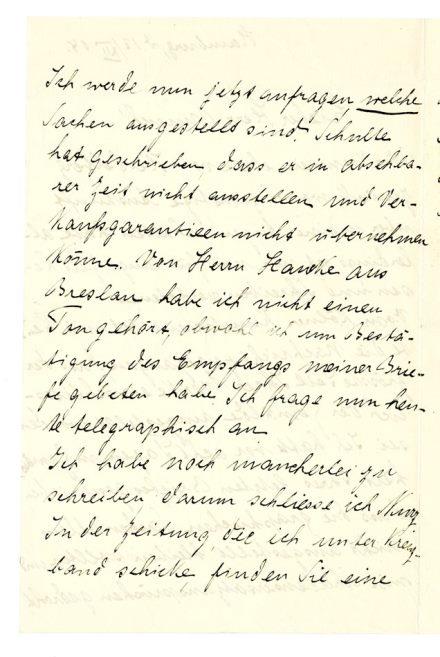 Ich werde nun jetzt anfragen, welche
Sachen ausgestellt sind. Schulte
hat geschrieben, dass er in absehba-
rer Zeit nicht ausstellen und Ver-
kaufsgarantieen nicht übernehmen
könne. Von Herrn aus
Breslau habe ich nicht einen
Ton gehört, obwohl ich um Bestä-
tigung des Empfangs meiner Brie-
fe gebeten habe. Ich frage nun heu-
te telegraphisch an
Ich habe noch mancherlei zu
schreiben, darum schliesse ich
In der Zeitung, die ich unter Kreuz-
band schicke, finden Sie eine